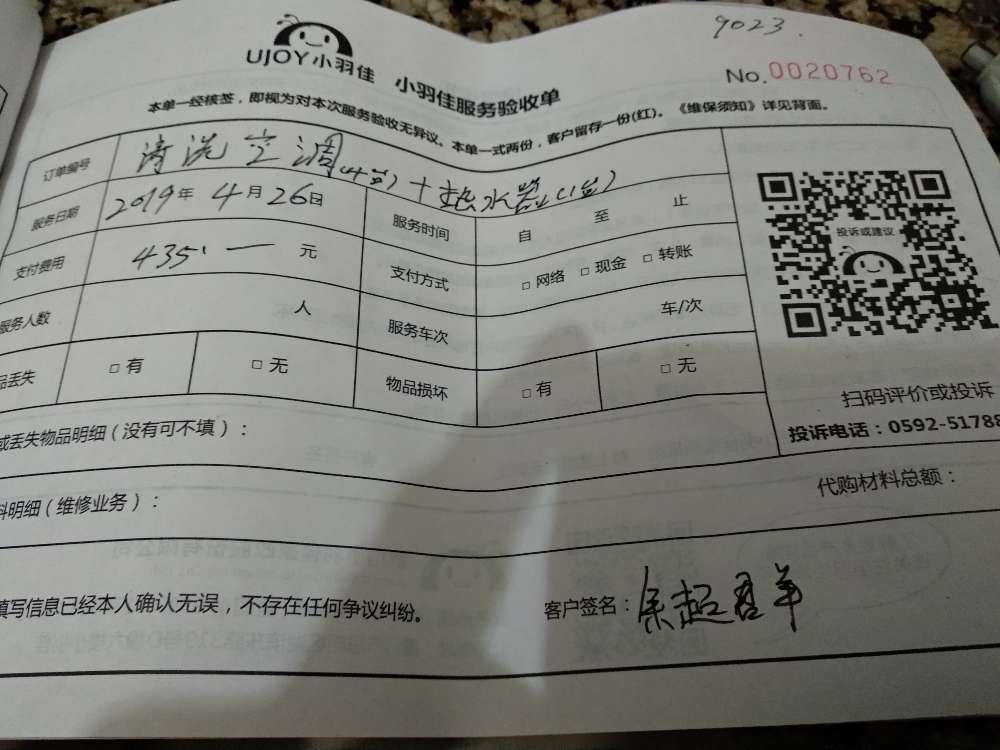 9023.
UJOY小羽佳 小羽佳服务验收单
No.0020762
本单一经核签，即视为对本次服务验收无异议、本单一式两份，客户留存一份(红)。《维保须知》详见背面。
订单编号 清洗空调(4台)+热水器(1台)
服务日期 2019年4月26日 服务时间 自 至 止
支付费用 435.一 元 支付方式 □ 网络 □ 现金 □ 转账
服务人数 人 服务车次 车/次
品丢失 □ 有 □ 无 物品损坏 □ 有 □ 无
投诉或建议
扫码评价或投诉
投诉电话：0592-51788
或丢失物品明细(没有可不填)：
料明细(维修业务)： 代购材料总额：
填写信息已经本人确认无误，不存在任何争议纠纷。 客户签名：